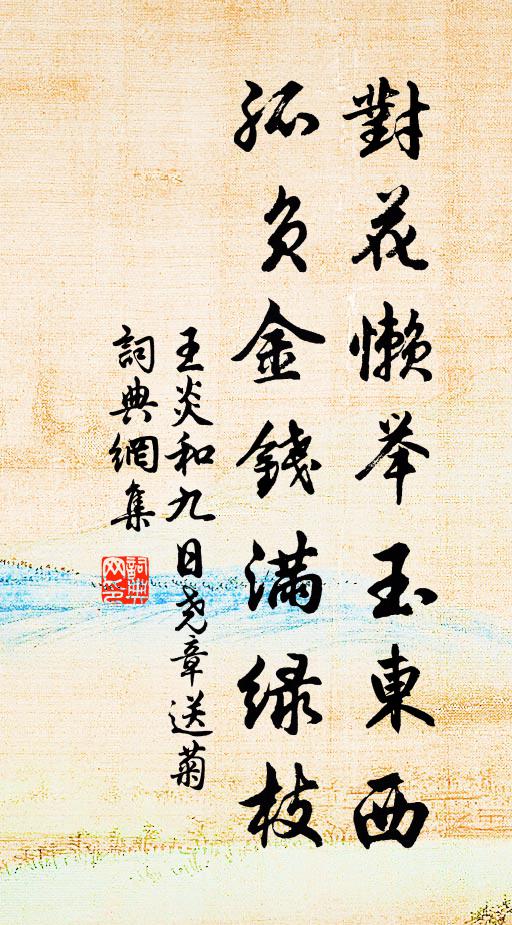 對花懶举玉東西
孤负金錢滿緑枝
王炎和九日尧章送菊
詞典網集
詞典網印